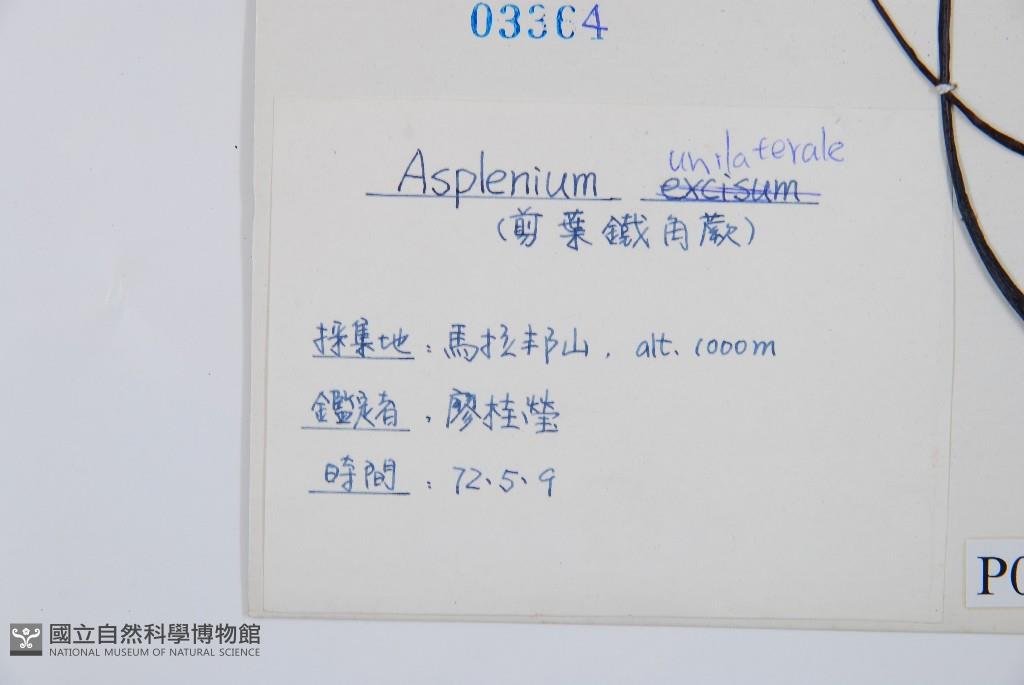 03364
unilaterale
Asplenium excisum
(剪葉鐵角蕨)
採集地：馬拉邦山, alt. 1000m
鑑定者：廖桂瑩
時間：72.5.9
P0
國立自然科學博物館
NATIONAL MUSEUM OF NATURAL SCIENCE